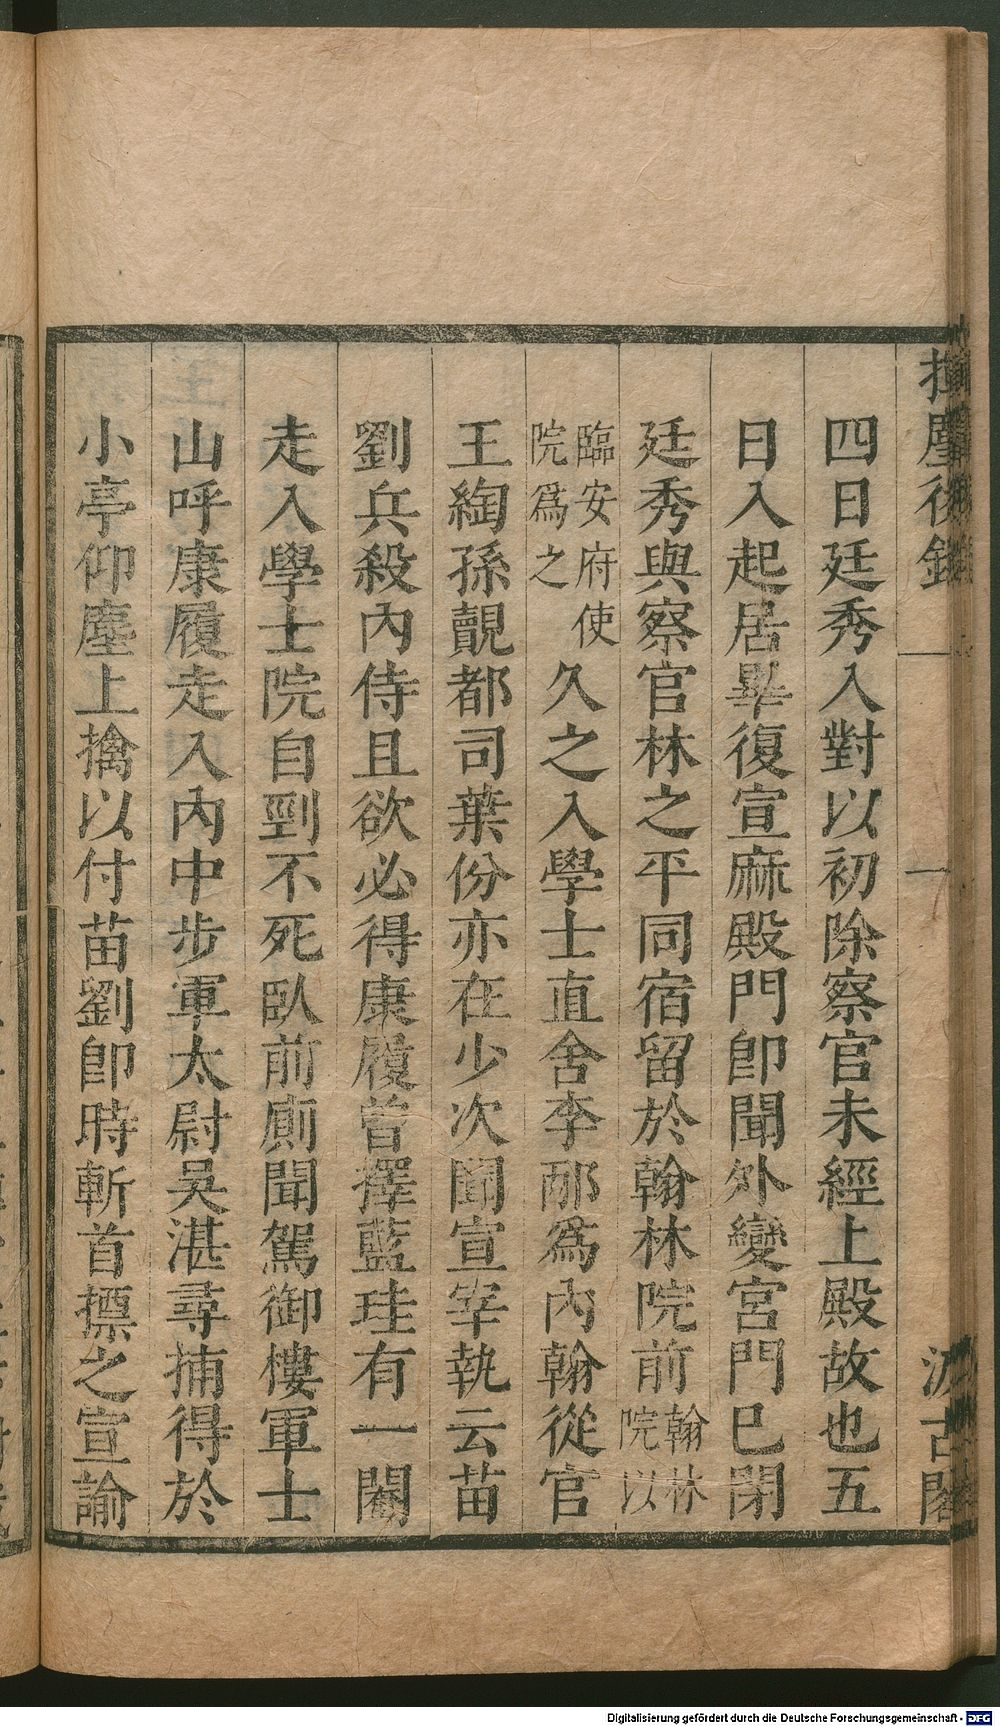 揮麈後錄
一
汲古閣
四日廷秀入對以初除察官未經上殿故也五
日入起居畢復宣麻殿門卽聞外變宮門已閉
廷秀與察官林之平同宿留於翰林院前翰林院以
臨安府使院爲之久之入學士直舍李邴爲內翰從官
王綯孫覿都司葉份亦在少次聞宣宰執云苗
劉兵殺內侍且欲必得康履曾擇藍珪有一閹
走入學士院自剄不死臥前廁聞駕御樓軍士
山呼康履走入內中步軍太尉吳湛尋捕得於
小亭仰塵上擒以付苗劉卽時斬首摽之宣諭
Digitalisierung gefördert durch die Deutsche Forschungsgemeinschaft - DFG